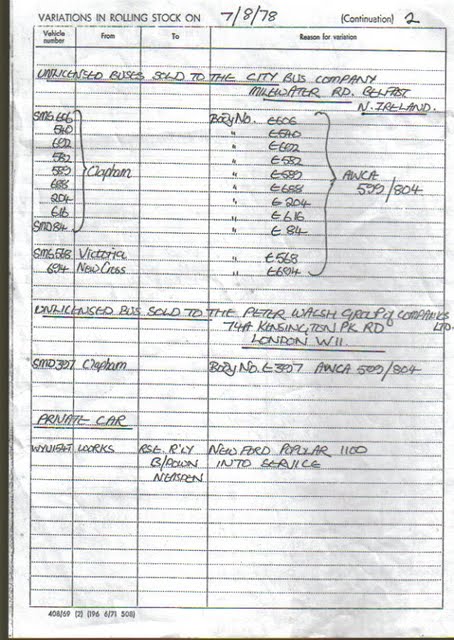 VARIATIONS IN ROLLING STOCK ON 7/8/78 (Continuation) 2
Vehicle number From To Reason for variation
UNLICENSED BUSES SOLD TO THE CITY BUS COMPANY
MILEWATER RD. BELFAST
N. IRELAND.
SMS 606 Body No. E606
540 " E540
602 " E602
582 " E582
589 Clapham " E589 AWCA
688 " E688 599/804
204 " E204
616 " E616
SMD 84 " E 84
SMS 568 Victoria " E568
694 New Cross " E694
UNLICENSED BUS SOLD TO THE PETER WALSH GROUP of COMPANIES
74A KENSINGTON PK. RD LTD.
LONDON W11.
SMD 397 Clapham Body No. E397 AWCA 599/804
PRIVATE CAR
WORKS RSE. R'LY NEW FORD POPULAR 1100
B/DOWN INTO SERVICE
NEASDEN
408/69 (2) (196 6/71 508)